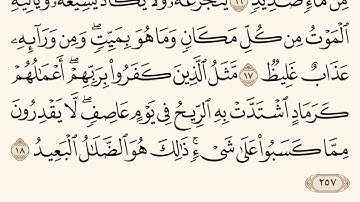 مِن مَّآءٍ صَدِيدٍ ١٦ يَتَجَرَّعُهُۥ وَلَا يَكَادُ يُسِيغُهُۥ وَيَأْتِيهِ
ٱلْمَوْتُ مِن كُلِّ مَكَانٍ وَمَا هُوَ بِمَيِّتٍۖ وَمِن وَرَآئِهِۦ
عَذَابٌ غَلِيظٌ ١٧ مَّثَلُ ٱلَّذِينَ كَفَرُوا۟ بِرَبِّهِمْۖ أَعْمَٰلُهُمْ
كَرَمَادٍ ٱشْتَدَّتْ بِهِ ٱلرِّيحُ فِى يَوْمٍ عَاصِفٍۖ لَّا يَقْدِرُونَ
مِمَّا كَسَبُوا۟ عَلَىٰ شَىْءٍۚ ذَٰلِكَ هُوَ ٱلضَّلَٰلُ ٱلْبَعِيدُ ١٨
٢٥٧